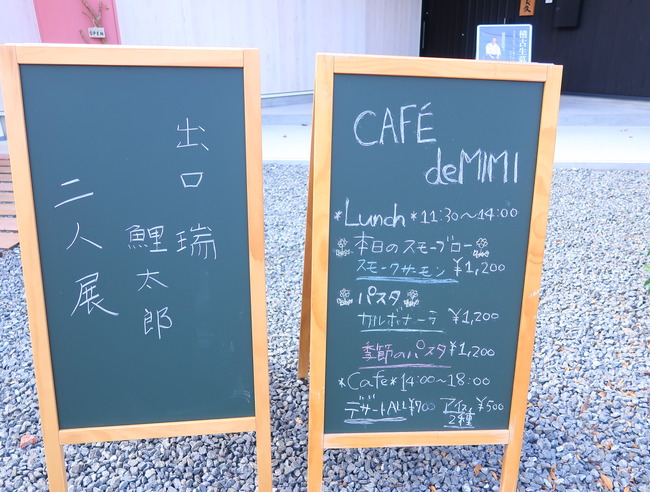 OPEN
出口
瑞
鯉太郎
二人展
CAFÉ
deMIMI
*Lunch* 11:30〜14:00
本日のスモーブロー
スモークサーモン ¥1,200
パスタ
カルボナーラ ¥1,200
季節のパスタ ¥1,200
*Cafe* 14:00〜18:00
デザートALL¥700 アイス ¥500
2種